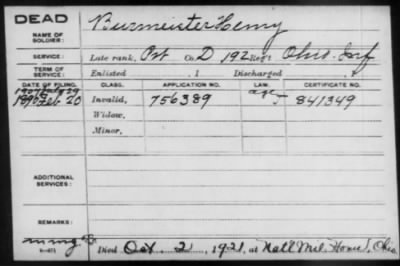 DEAD
NAME OF SOLDIER: Burmeister Henry
SERVICE: Late rank, Pvt Co. D, 192 Reg't Ohio Inf
TERM OF SERVICE: Enlisted , 1 Discharged , 1
DATE OF FILING. CLASS. APPLICATION NO. LAW. CERTIFICATE NO.
1907 29 age
1890 Feb. 20 Invalid, 756389 841349
Widow,
Minor,
ADDITIONAL SERVICES:
REMARKS:
6-471 Died Oct. 2, 1921, at Natl Mil. Home, Ohio